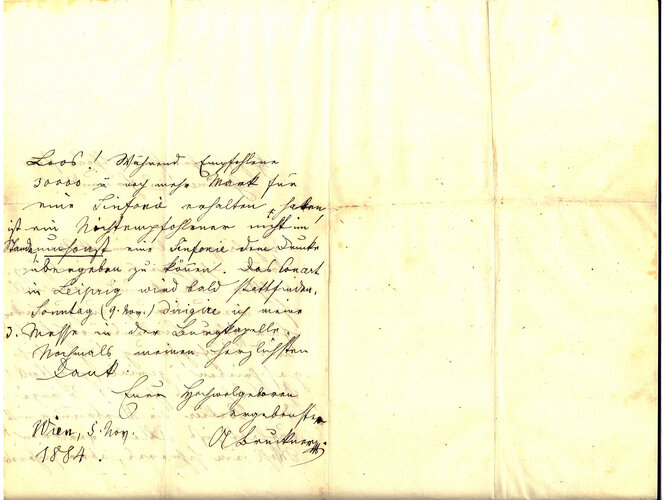 Loos! Während Empfohlene
30000 u noch mehr Mark für
eine Sinfonie erhalten haben,
ist ein Nichtempfohlener nicht im
Stande umsonst eine Sinfonie dem Drucke
übergeben zu können. Das Concert
in Leipzig wird bald stattfinden.
Sonntag (9. Nov.) dirigire ich meine
3. Messe in der Burgkapelle.
Nochmals meinen herzlichsten
Dank.
Euer Hochwolgeboren
ergebenster
Wien, 5. Nov. ABruckner
1884.